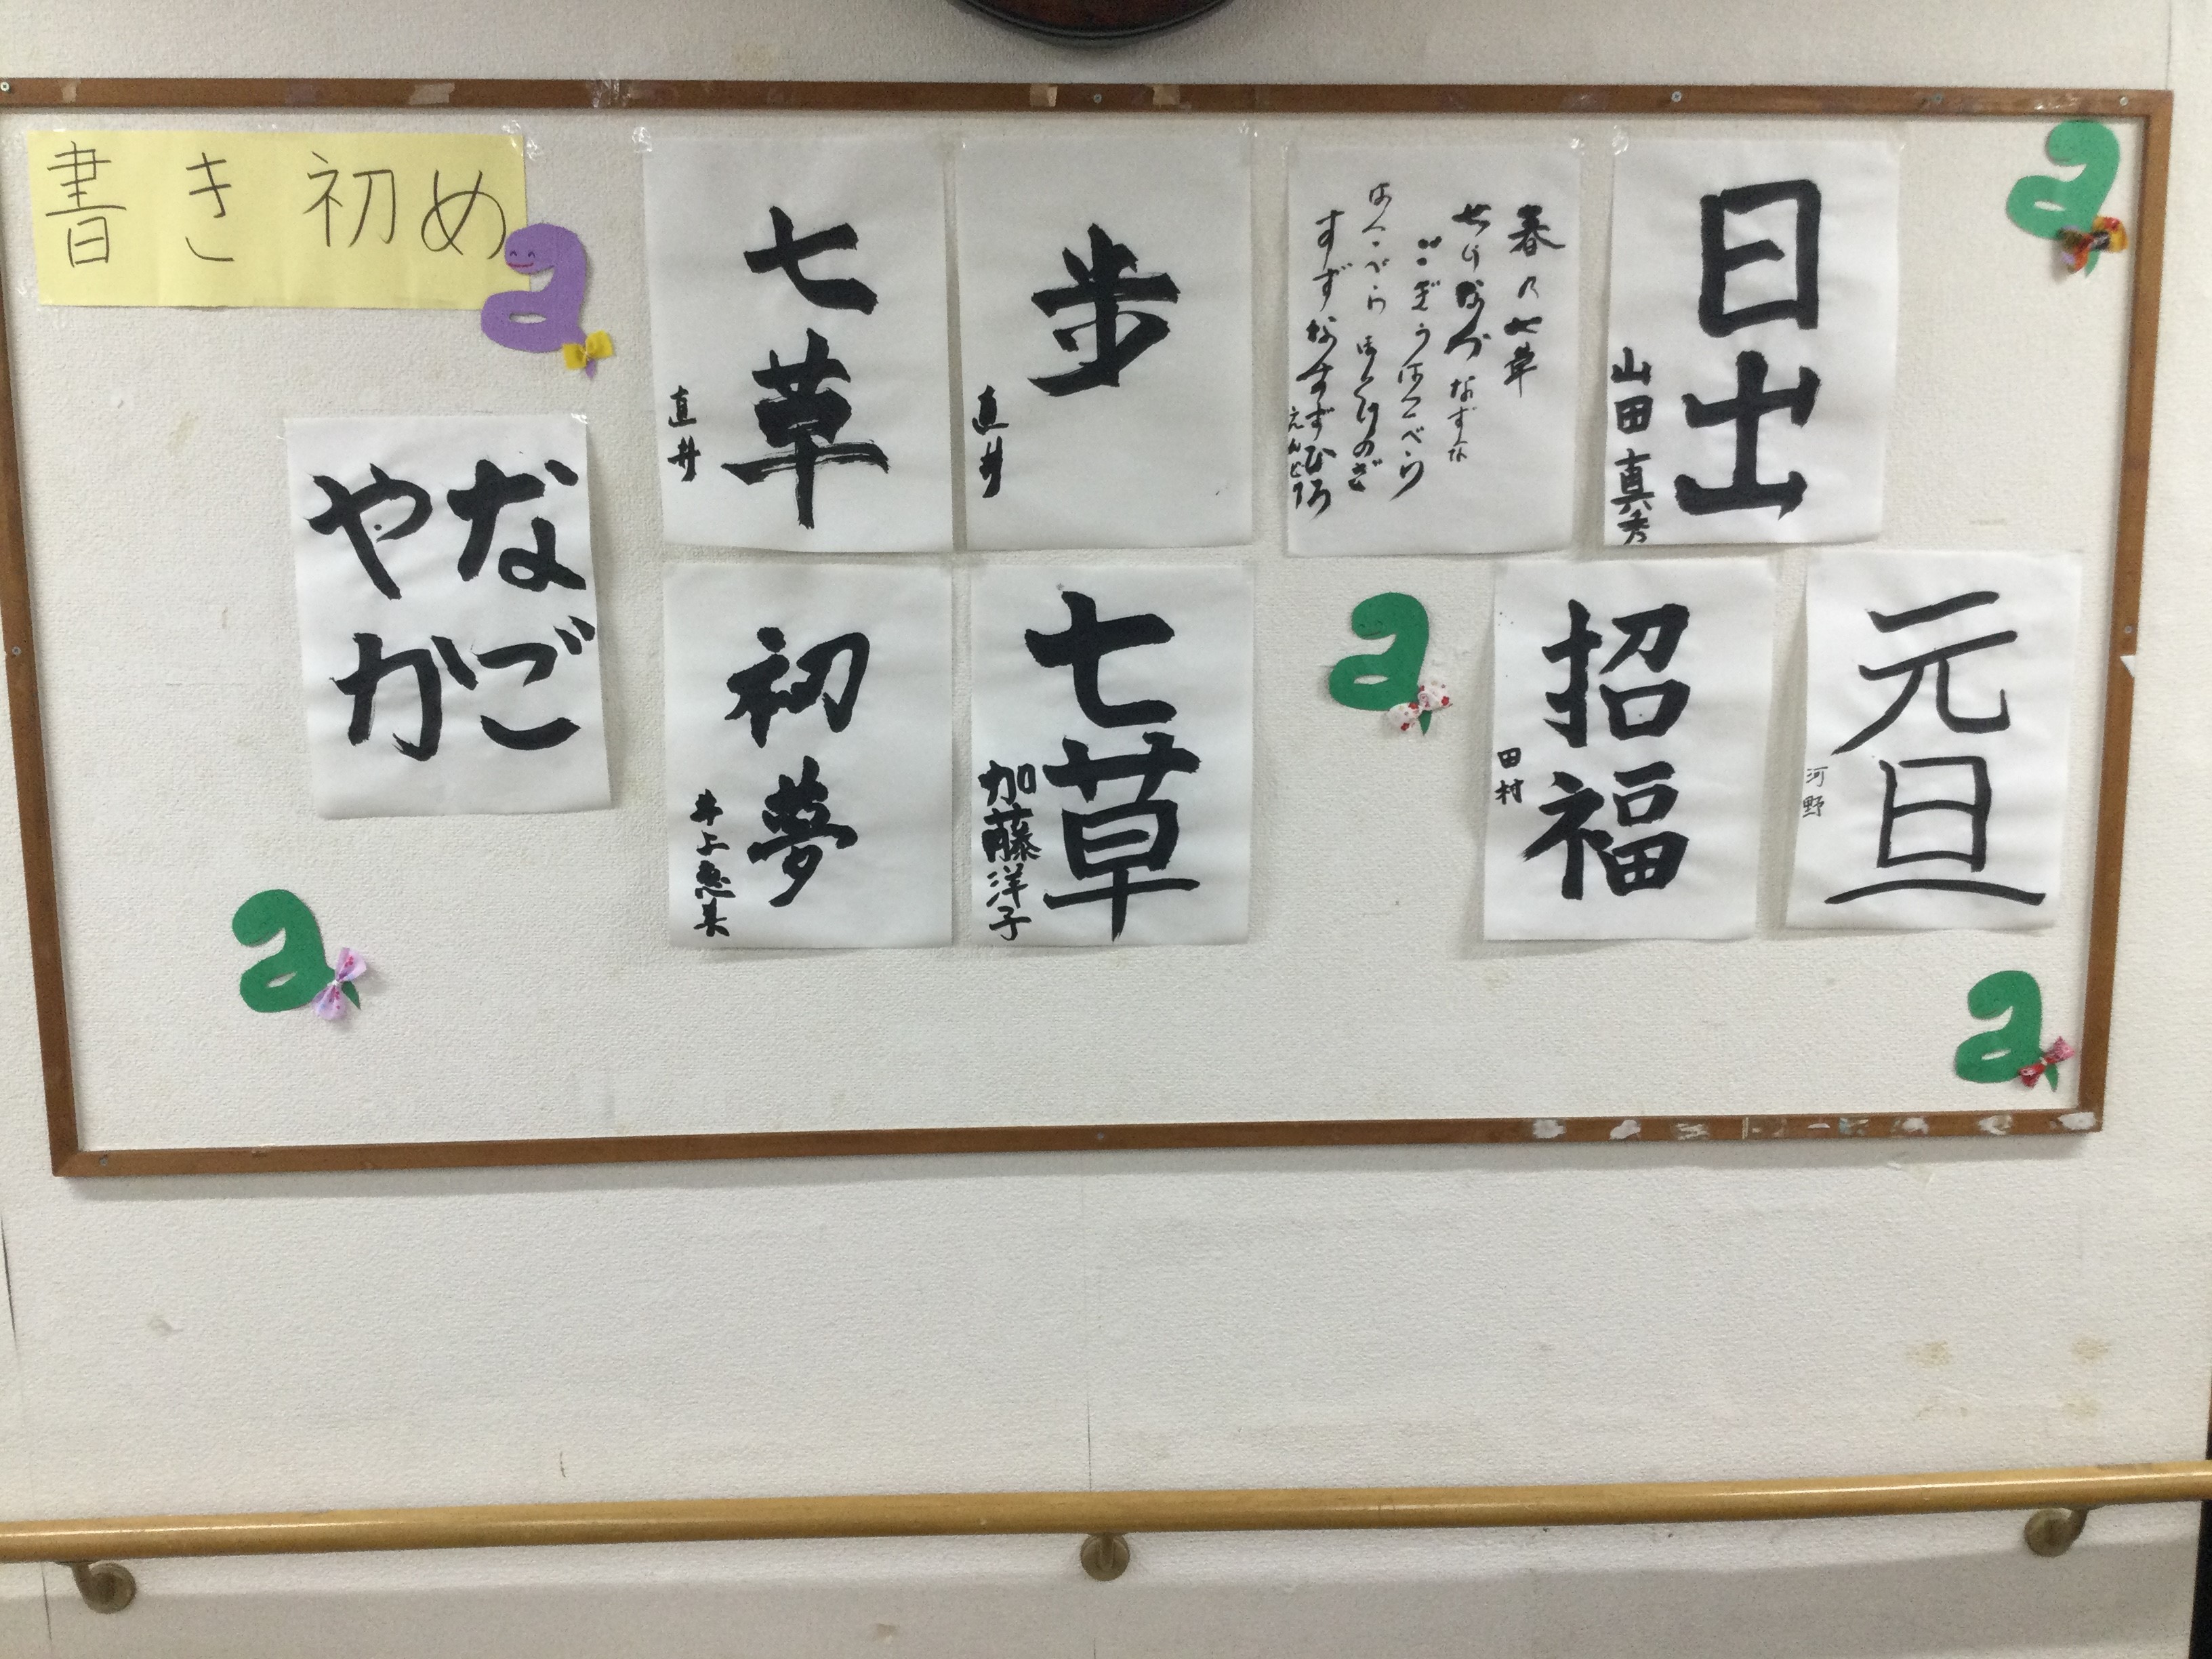 書き初め
日出
山田真秀
春の七草
せりなづなずな
ごぎょうはこべら
はこべら ほとけのざ
すずなすずしろ
歩
直井
七草
直井
元旦
河野
招福
田村
七草
加藤洋子
初夢
井上恵美
なご
やか